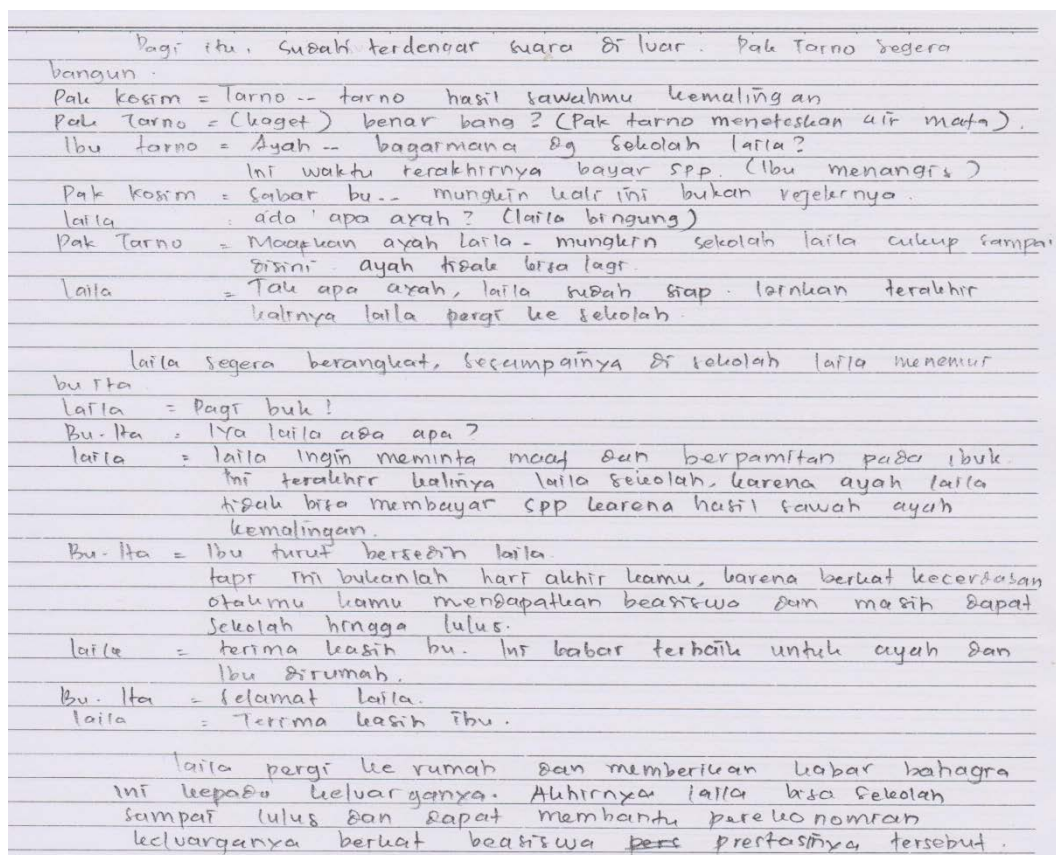 Pagi itu, sudah terdengar suara di luar. Pak Tarno segera
bangun.
Pak kosim = Tarno -- tarno hasil sawahmu kemalingan
Pak Tarno = (kaget) benar bang? (Pak tarno meneteskan air mata).
Ibu tarno = Ayah -- bagaimana dg sekolah laila?
Ini waktu terakhirnya bayar spp. (Ibu menangis)
Pak kosim = Sabar bu.. mungkin kali ini bukan rejekinya.
laila : ada apa ayah? (laila bingung)
Pak Tarno = Maafkan ayah Laila - mungkin sekolah laila cukup sampai
disini. ayah tidak bisa lagi.
Laila = Tak apa ayah, laila sudah siap. Izinkan terakhir
kalinya laila pergi ke sekolah.
laila segera berangkat, sesampainya di sekolah laila menemui
bu Ita
Laila = Pagi buk!
Bu-Ita = Iya laila ada apa?
laila = laila ingin meminta maaf dan berpamitan pada ibuk.
Ini terakhir kalinya laila sekolah, karena ayah laila
tidak bisa membayar spp karena hasil sawah ayah
kemalingan.
Bu-Ita = Ibu turut bersedih laila.
tapi ini bukanlah hari akhir kamu, karena berkat kecerdasan
otakmu kamu mendapatkan beasiswa dan masih dapat
sekolah hingga lulus.
laila = terima kasih bu. Ini kabar terbaik untuk ayah dan
Ibu dirumah.
Bu. Ita = selamat Laila.
laila = Terima kasih ibu.
laila pergi ke rumah dan memberikan kabar bahagia
ini kepada keluarganya. Akhirnya laila bisa sekolah
sampai lulus dan dapat membantu perekonomian
keluarganya berkat beasiswa pers prestasinya tersebut.